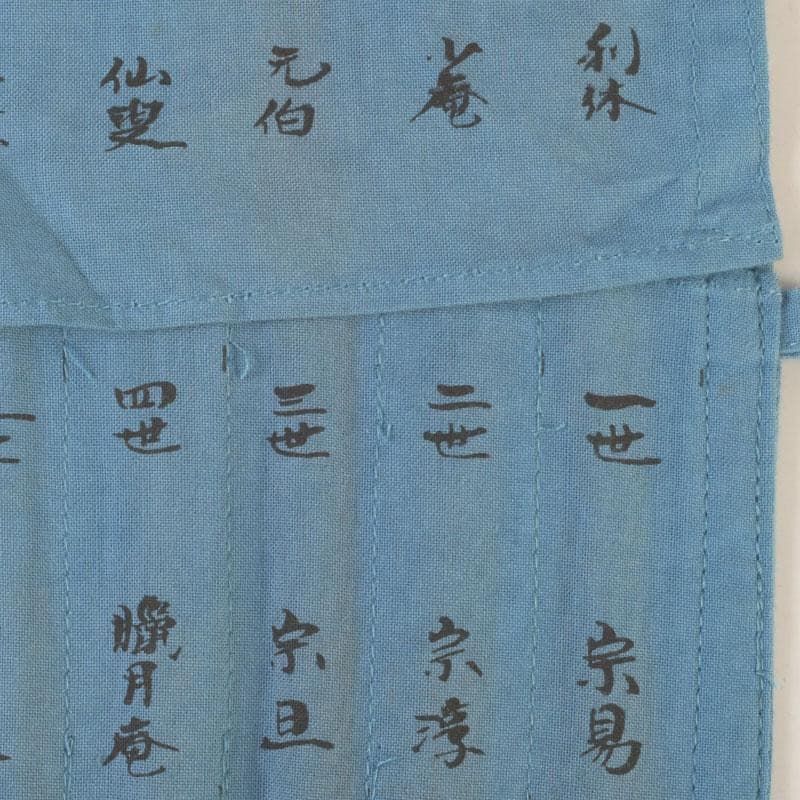 利休
少庵
元伯
仙叟
一世
二世
三世
四世
宗易
宗淳
宗旦
臘月庵